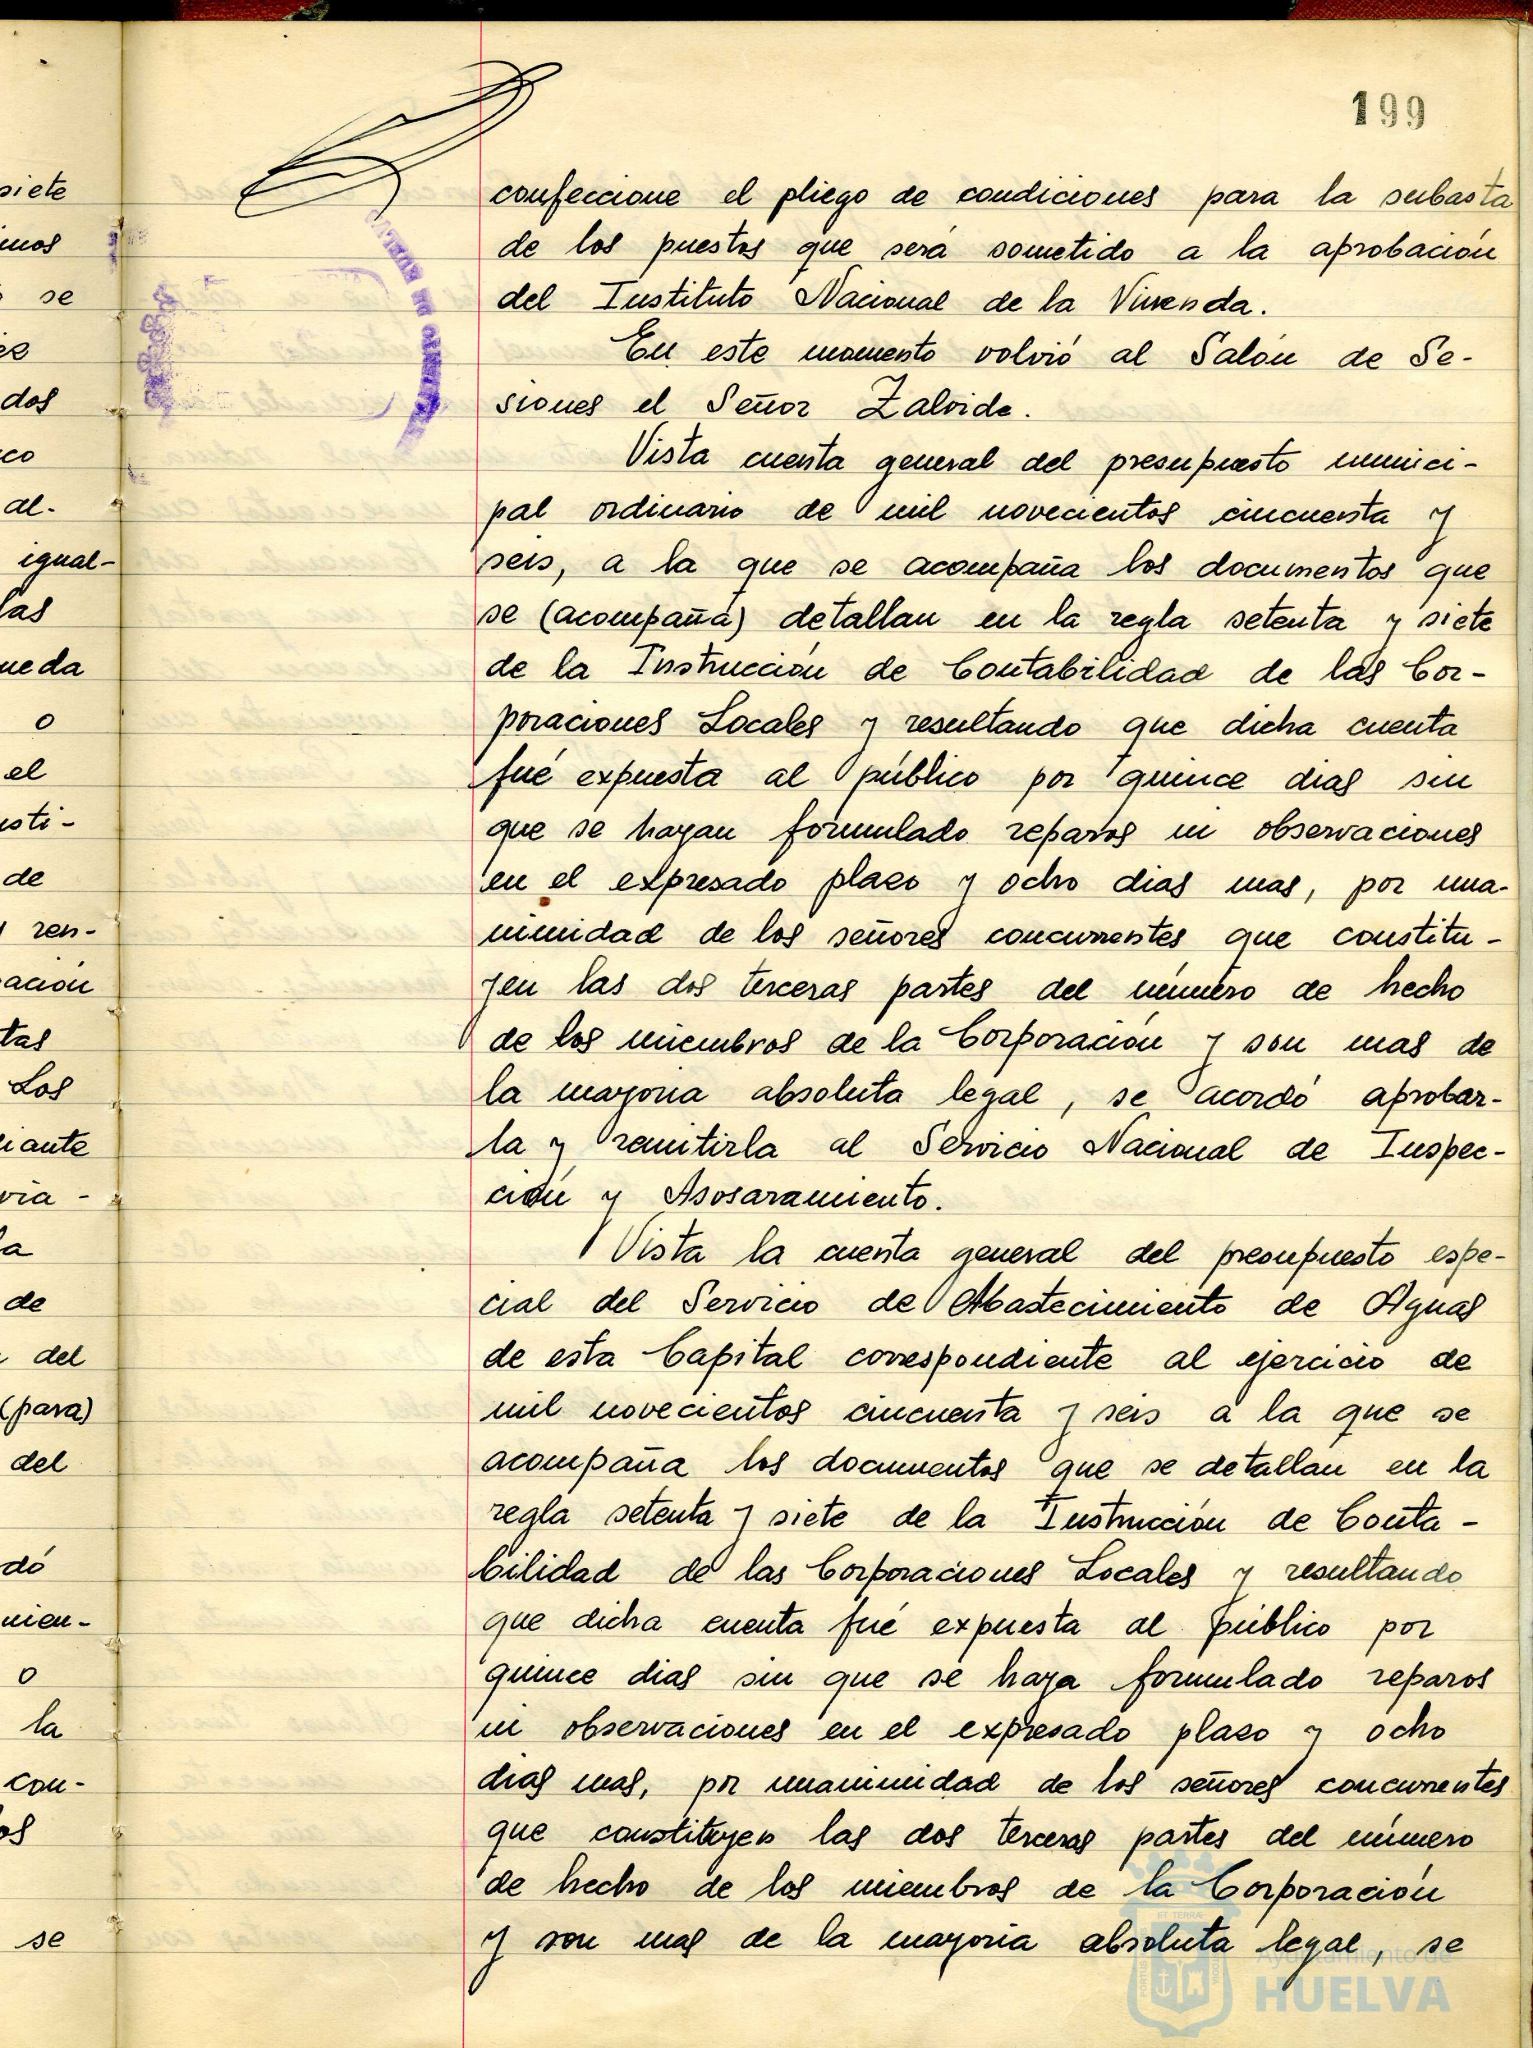 199
confeccione el pliego de condiciones para la subasta
de los puestos que será sometido a la aprobación
del Instituto Nacional de la Vivienda.
En este momento volvió al Salón de Se-
siones el Señor Zalvide.
Vista cuenta general del presupuesto munici-
pal ordinario de mil novecientos cincuenta y
seis, a la que se acompaña los documentos que
se (acompaña) detallan en la regla setenta y siete
de la Instrucción de Contabilidad de las Cor-
poraciones Locales y resultando que dicha cuenta
fué expuesta al público por quince dias sin
que se hayan formulado reparos ni observaciones
en el expresado plazo y ocho dias mas, por una-
nimidad de los señores concurrentes que constitu-
yen las dos terceras partes del número de hecho
de los miembros de la Corporación y son mas de
la mayoria absoluta legal, se acordó aprobar-
la y remitirla al Servicio Nacional de Inspec-
ción y Asosaramiento.
Vista la cuenta general del presupuesto espe-
cial del Servicio de Abastecimiento de Aguas
de esta Capital correspondiente al ejercicio de
mil novecientos cincuenta y seis a la que se
acompaña los documentos que se detallan en la
regla setenta y siete de la Instrucción de Conta-
bilidad de las Corporaciones Locales y resultando
que dicha cuenta fué expuesta al público por
quince dias sin que se haya formulado reparos
ni observaciones en el expresado plazo y ocho
dias mas, por unanimidad de los señores concurrentes
que constituyen las dos terceras partes del número
de hecho de los miembros de la Corporación
y son mas de la mayoria absoluta legal, se
Ayuntamiento de
HUELVA
siete
se
dos
al.
igual-
las
o
el
de
ren-
Los
de
del
(para)
del
o
la
con-
se